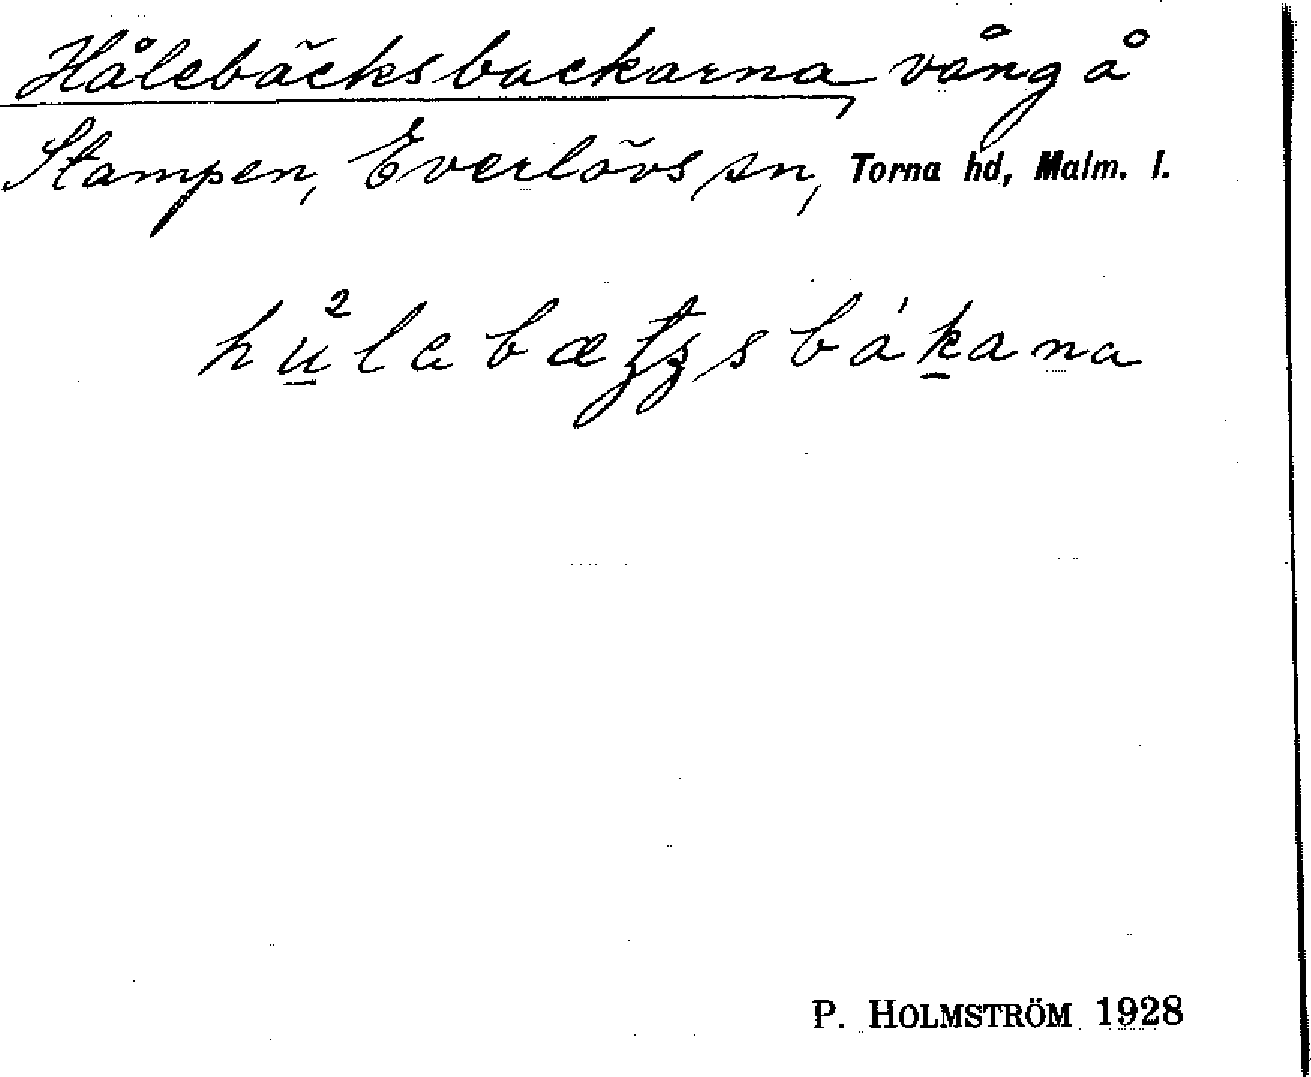 Hålebäcksbackarna, vång å
Stampen, Everlövs sn, Torna hd, Malm. l.
P. HOLMSTRÖM 1928